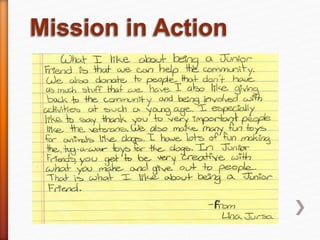 Mission in Action
What I like about being a Junior
Friend is that we can help the community.
We also donate to people that don't have
as much stuff that we have. I also like giving
back to the community and being involved with
activities at such a young age. I especially
like to say thank you to very important people
like the veterans. We also make many fun toys
for animals like dogs. I have lots of fun making
the tug-a-war toys for the dogs. In Junior
Friends, you get to be very creative with
what you make and give out to people.
That is what I like about being a Junior
Friend.
-From
Lina Jursa